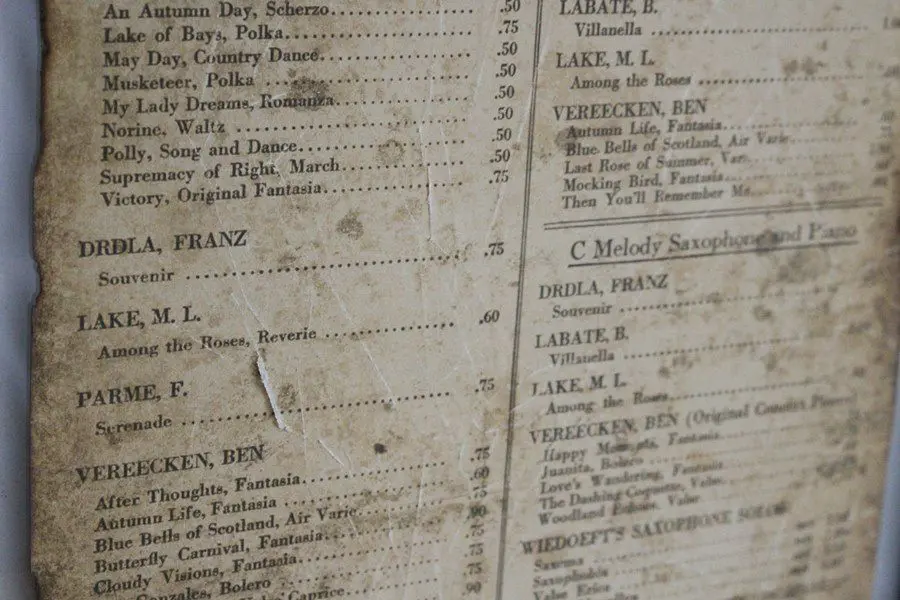 An Autumn Day, Scherzo .50
Lake of Bays, Polka .75
May Day, Country Dance .50
Musketeer, Polka .50
My Lady Dreams, Romanza .50
Norine, Waltz .50
Polly, Song and Dance .50
Supremacy of Right, March .50
Victory, Original Fantasia .75
DRDLA, FRANZ
Souvenir .75
LAKE, M. L.
Among the Roses, Reverie .60
PARME, F.
Serenade .75
VEREECKEN, BEN
After Thoughts, Fantasia .75
Autumn Life, Fantasia .60
Blue Bells of Scotland, Air Varie .75
Butterfly Carnival, Fantasia .90
Cloudy Visions, Fantasia .75
Gonzales, Bolero .75
Caprice .75
.90
LABATE, B.
Villanella
LAKE, M. L.
Among the Roses
VEREECKEN, BEN
Autumn Life, Fantasia
Blue Bells of Scotland, Air Varie
Last Rose of Summer, Var.
Mocking Bird, Fantasia
Then You'll Remember Me
C Melody Saxophone and Piano
DRDLA, FRANZ
Souvenir
LABATE, B.
Villanella
LAKE, M. L.
Among the Roses
VEREECKEN, BEN (Original
Happy Moments, Fantasia
Juanita, Bolero
Love's Wandering, Fantasia
The Dashing Coquette, Valse
Woodland Echoes, Valse
WIEDOEFT'S SAXOPHONE SOLOS
Saxema
Saxophobia
Valse Erica